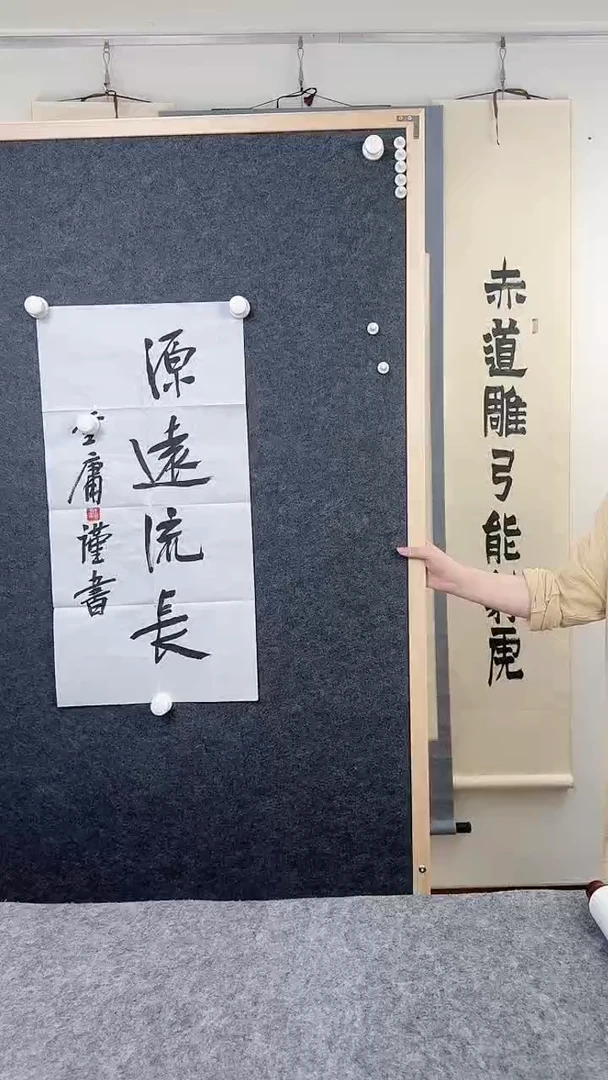 赤道雕弓能虎
源遠流長
庸謹書